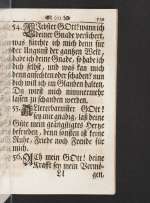 54. Liebster GOtt! wann ich
deiner Gnade versichert,
was fürchte ich mich denn für
der Ungunst der gantzen Welt,
habe ich deine Gnade, so habe ich
dich selbst, und was kan mich
denn anfechten oder schaden? nun
dich will ich im Glauben halten,
Du wirst mich nimmermehr
lassen zu schanden werden.
55. Allerbarmster GOtt!
sey mir gnädig, laß deine
Güte mein geängstigtes Hertze
befreyen, denn sonsten ist keine
Ruhe, Friede noch Freude für
mich.
56. Ach mein GOtt! deine
Krafft sey mein Vermö-
gen.